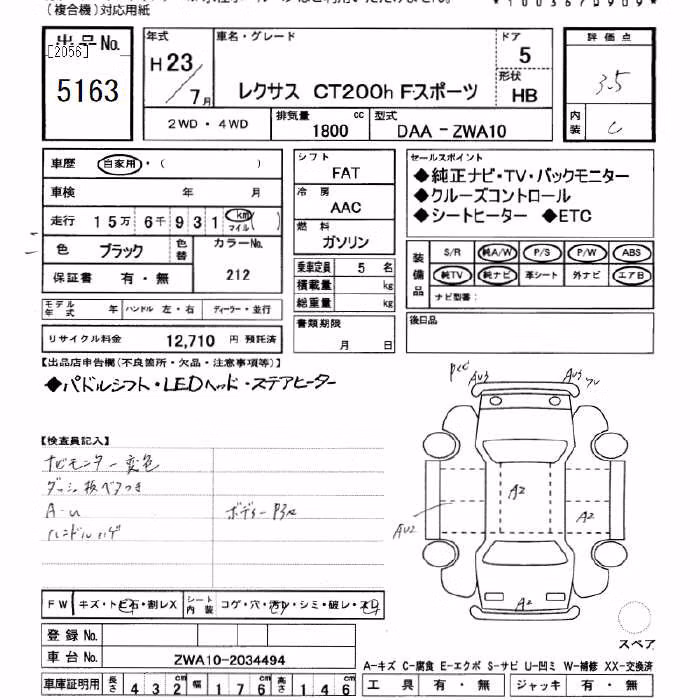 (複合機)対応用紙
出品No.
[2056]
5163
年式
H23/7月
車名・グレード
レクサス CT200h Fスポーツ
ドア
5
形状
HB
評価点
3.5
内装
C
2WD・4WD
排気量
1800 cc
型式
DAA-ZWA10
車歴 自家用・( )
車検 年 月
走行 15万6千931 km マイル( )
色 ブラック 色替
カラーNo.
212
保証書 有・無
モデル年式 年 ハンドル 左・右 ディーラー・並行
リサイクル料金 12,710 円 預託済
シフト
FAT
冷房
AAC
燃料
ガソリン
乗車定員 5 名
積載量 kg
総重量 kg
書類期限
月 日
セールスポイント
◆純正ナビ・TV・バックモニター
◆クルーズコントロール
◆シートヒーター ◆ETC
装備品
S/R 純A/W P/S P/W ABS
純TV 純ナビ 革シート 外ナビ エアB
ナビ型番:
後日品
【出品店申告欄(不良箇所・欠品・注意事項等)】
◆パドルシフト・LEDヘッド・ステアヒーター
【検査員記入】
ナビモニター変色
ダッシュ板ベタつき
A-u
ボディー
ハンドルハゲ
AU3
AU3
AU2
A2
A2
A2
スペア
FW キズ・トビ石・割レX
シート内装 コゲ・穴・汚レ・シミ・破レ・スレ
登録No.
車台No. ZWA10-2034494
車庫証明用 長さ 432cm 幅 176cm 高さ 146cm
A-キズ C-腐食 E-エクボ S-サビ U-凹ミ W-補修 XX-交換済
工具 有・無 ジャッキ 有・無